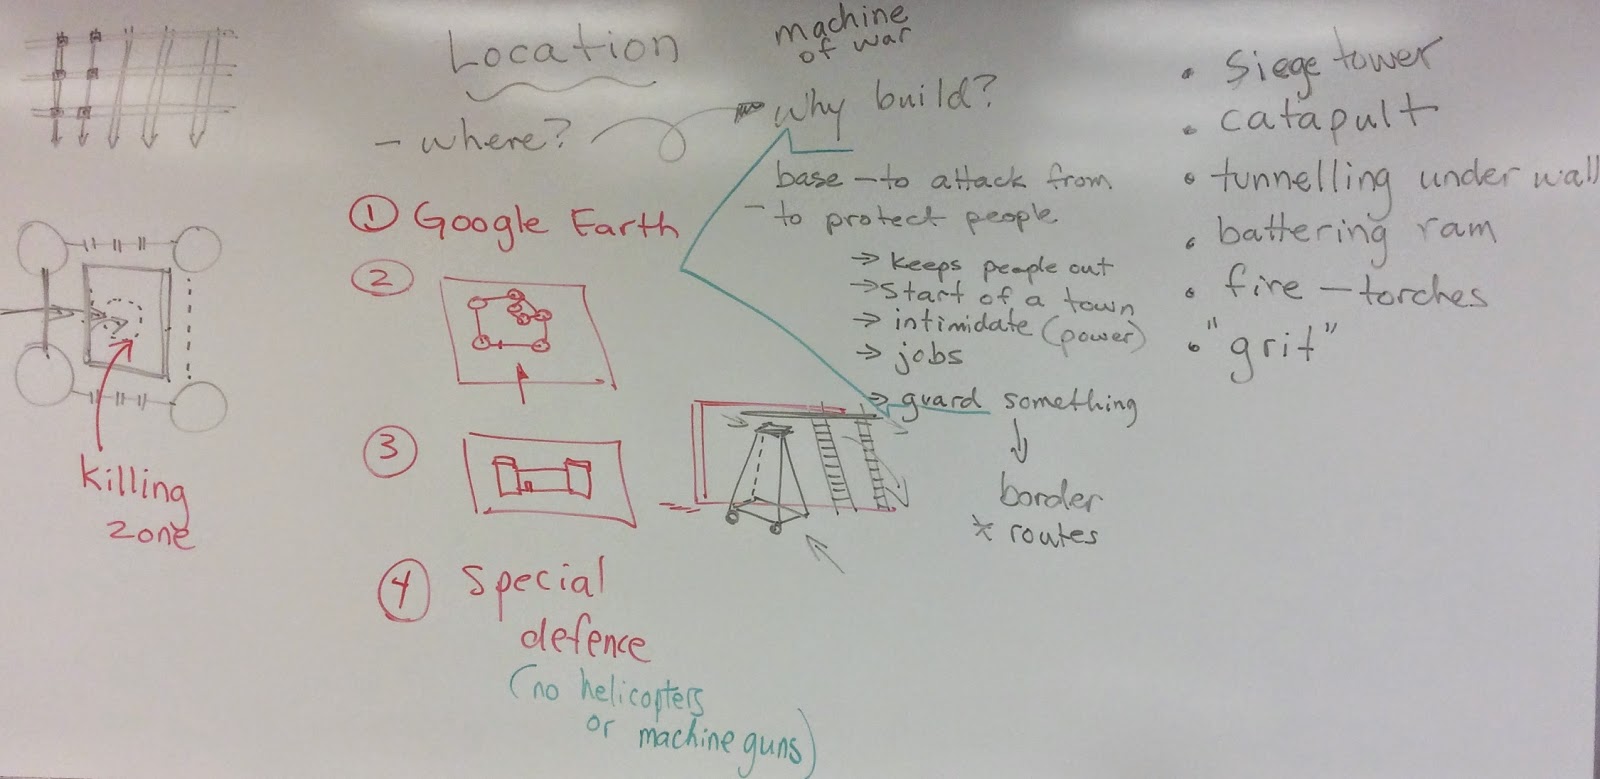 Location
- where?
① Google Earth
②
③
④ special
defence
(no helicopters
or machine guns)
killing
zone
machine
of war
why build?
base - to attack from
- to protect people
→ keeps people out
→ start of a town
→ intimidate (power)
→ jobs
→ guard something
border
* routes
• siege tower
• catapult
• tunnelling under wall
• battering ram
• fire - torches
• "grit"